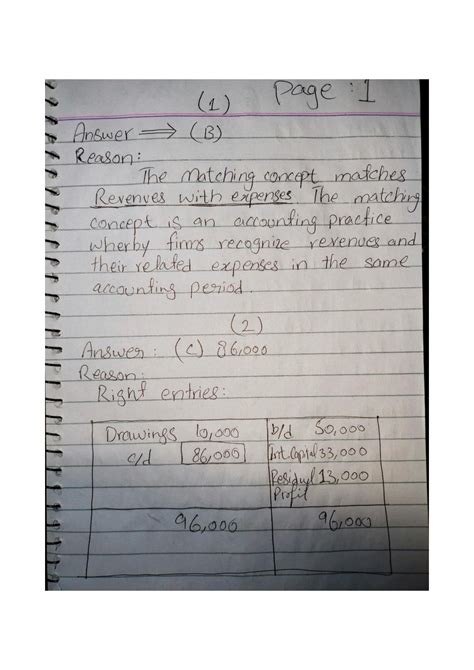 Page : 1
(1)
Answer ⟹ (B)
Reason:
The matching concept matches
Revenues with expenses. The matching
concept is an accounting practice
wherby firms recognize revenues and
their related expenses in the same
accounting period.
(2)
Answer : (C) 86,000
Reason:
Right entries:
Drawings 10,000 b/d 50,000
c/d 86,000 Int.Capital 33,000
Residual 13,000
Profit
96,000 96,000